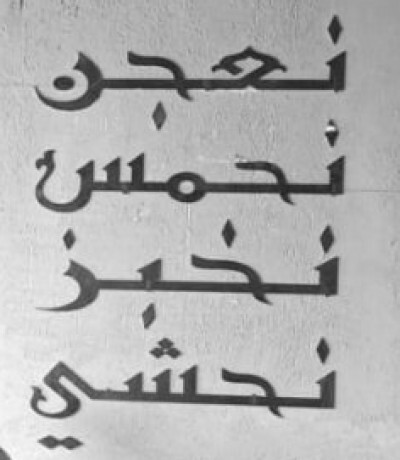 نعجن
نحمس
نخبز
نحشي